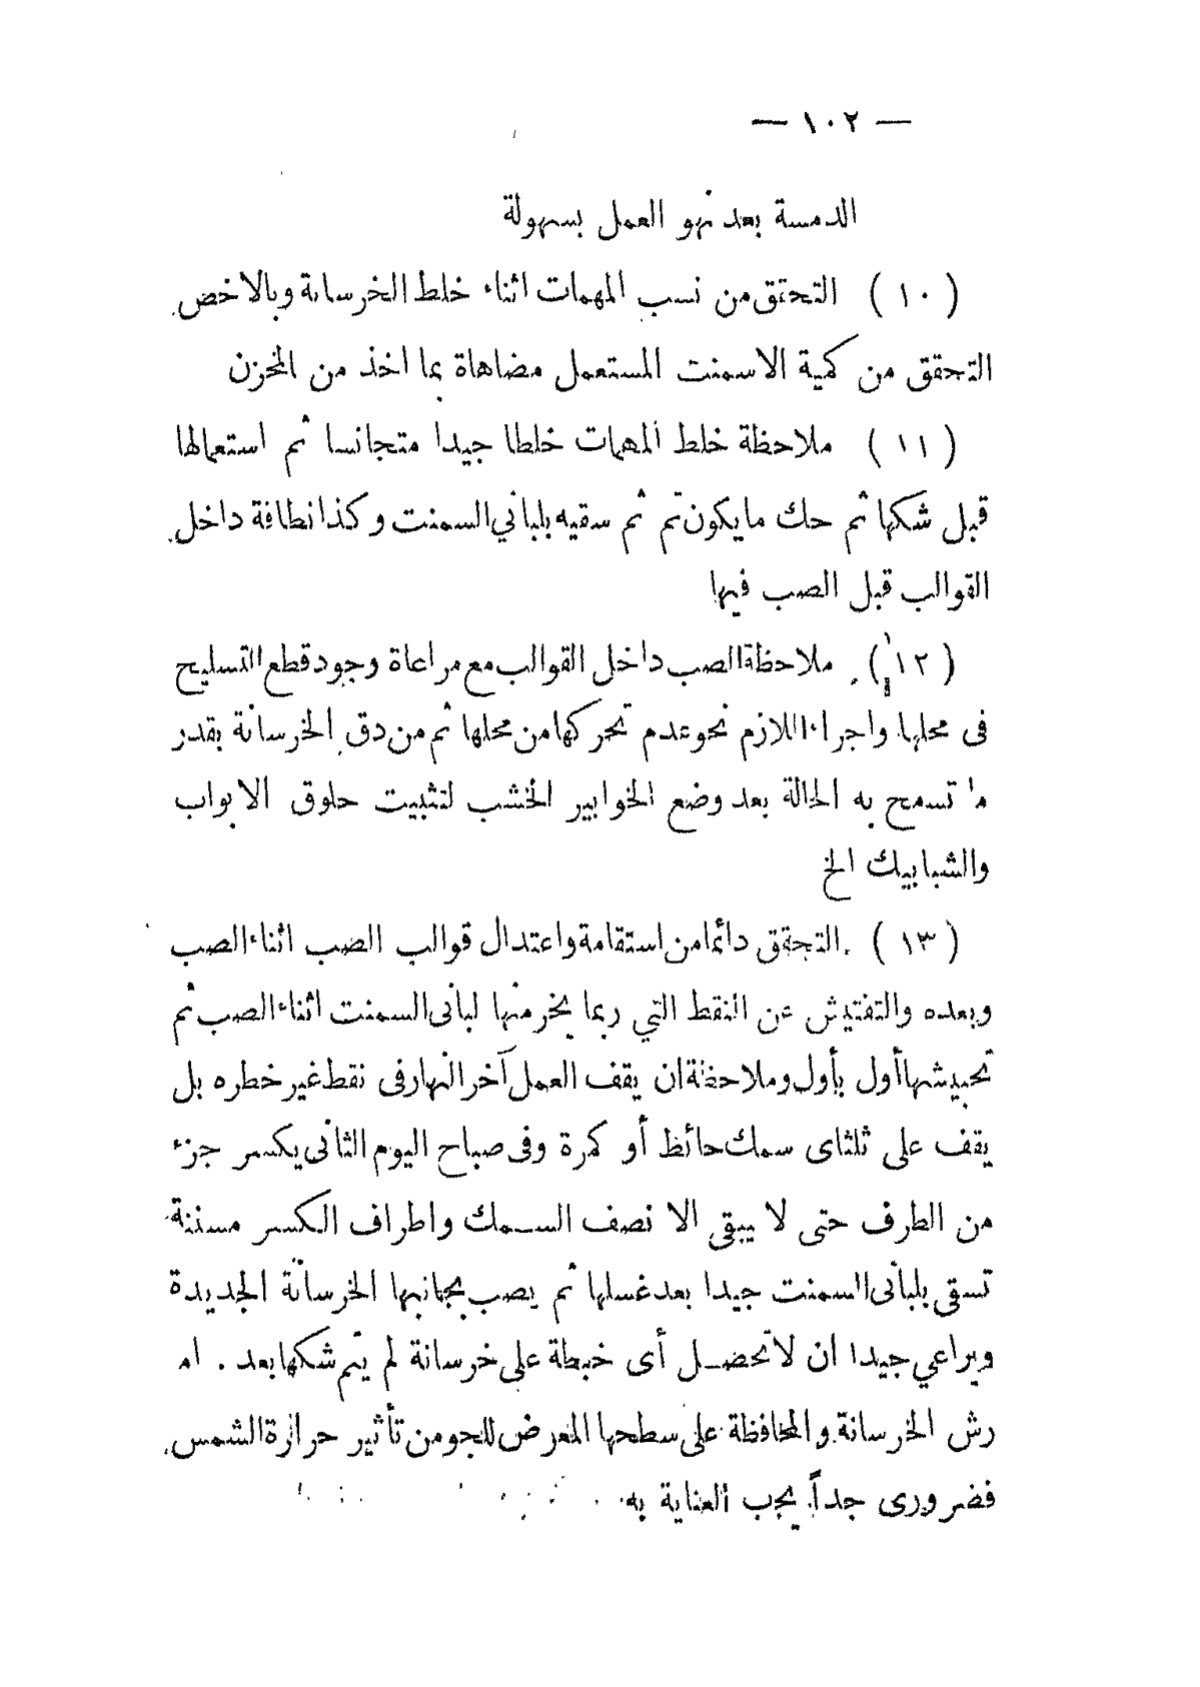 — ١٠٢ —
الدمسة بعد نهو العمل بسهولة
( ١٠ ) التحقق من نسب المهمات اثناء خلط الخرسانة وبالاخص
التحقق من كمية الاسمنت المستعمل مضاهاة بما اخذ من المخزن
( ١١ ) ملاحظة خلط المهمات خلطا جيدا متجانسا ثم استعمالها
قبل شكها ثم حك مايكون تم ثم سقيه بلباني السمنت وكذا نظافة داخل
القوالب قبل الصب فيها
( ١٢ ) ملاحظة الصب داخل القوالب مع مراعاة وجود قطع التسليح
فى محلها واجراء اللازم نحو عدم تحركها من محلها ثم من دق الخرسانة بقدر
ما تسمح به الحالة بعد وضع الخوابير الخشب لتثبيت حلوق الابواب
والشبابيك الخ
( ١٣ ) التحقق دائما من استقامة واعتدال قوالب الصب اثناء الصب
وبعده والتفتيش عن النقط التي ربما يخر منها لبانى السمنت اثناء الصب ثم
تحبيشها أول بأول وملاحظة ان يقف العمل آخر النهار فى نقط غير خطره بل
يقف على ثلثاى سمك حائظ أو كمرة وفى صباح اليوم الثانى يكسر جزء
من الطرف حتى لا يبقى الا نصف السمك واطراف الكسر مسننة
تسقى بلبانى السمنت جيدا بعد غسلها ثم يصب بجانبها الخرسانة الجديدة
ويراعي جيدا ان لا تحصل أى خبطة على خرسانة لم يتم شكها بعد . اما
رش الخرسانة والمحافظة على سطحها المعرض للجو من تأثير حرارة الشمس
فضرورى جداً يجب العناية به